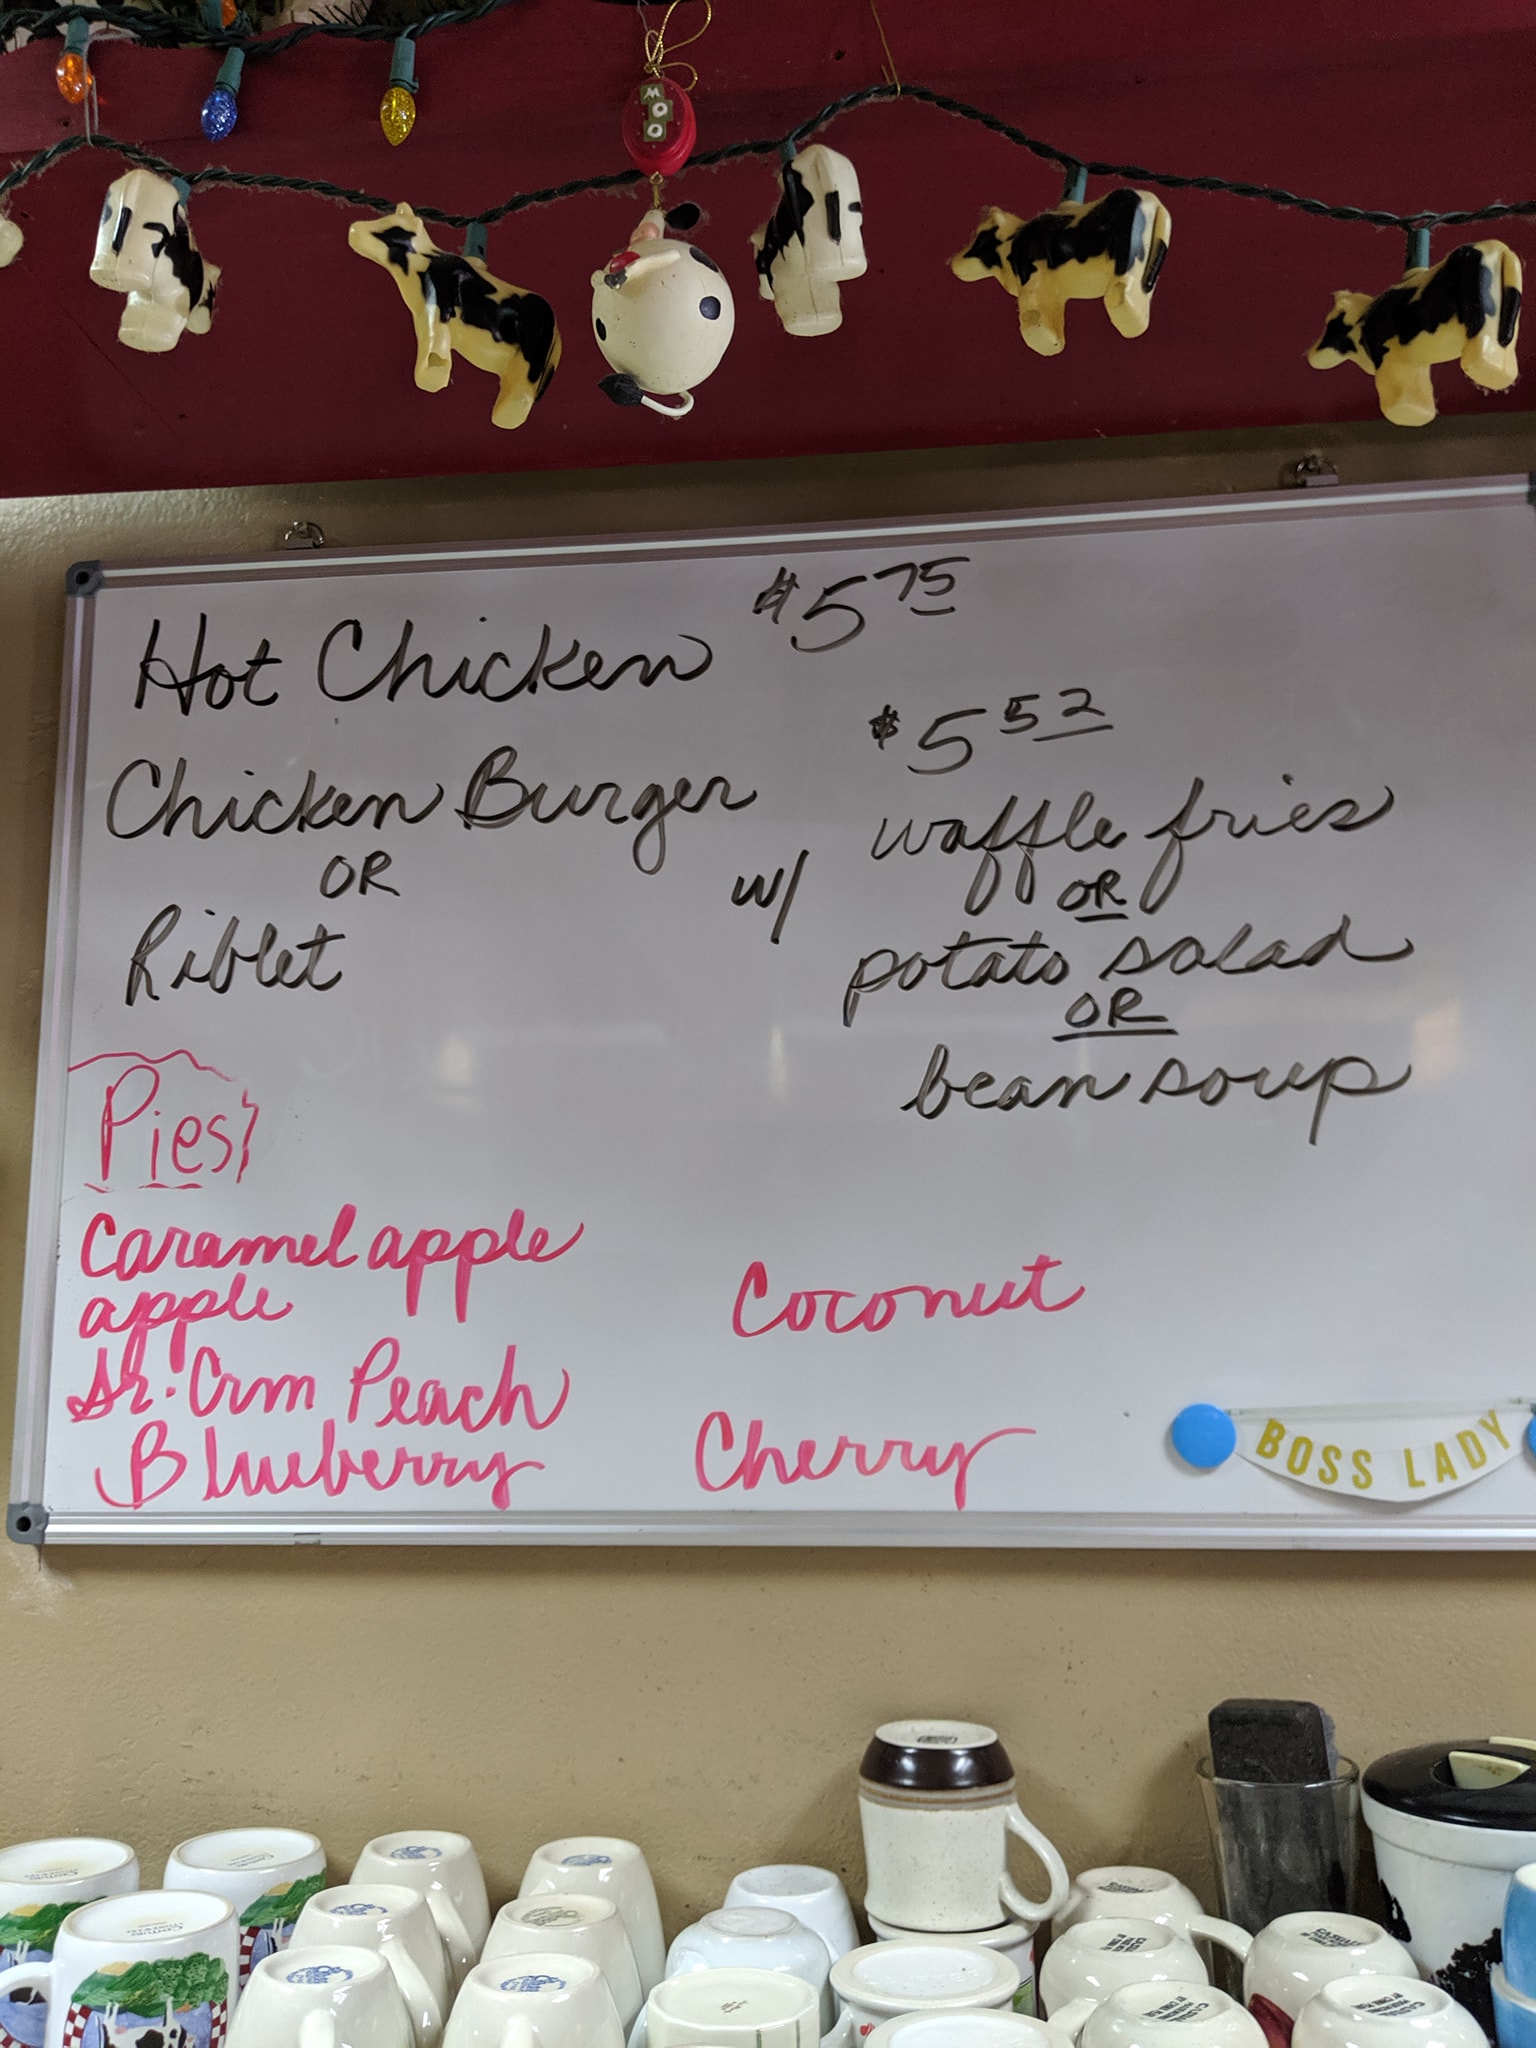 MOO
Hot Chicken $5 75
$5 52
Chicken Burger
OR
Riblet
w/
waffle fries
OR
potato salad
OR
bean soup
Pies
Caramel apple
apple
Sr. Crm Peach
Blueberry
Coconut
Cherry
BOSS LADY